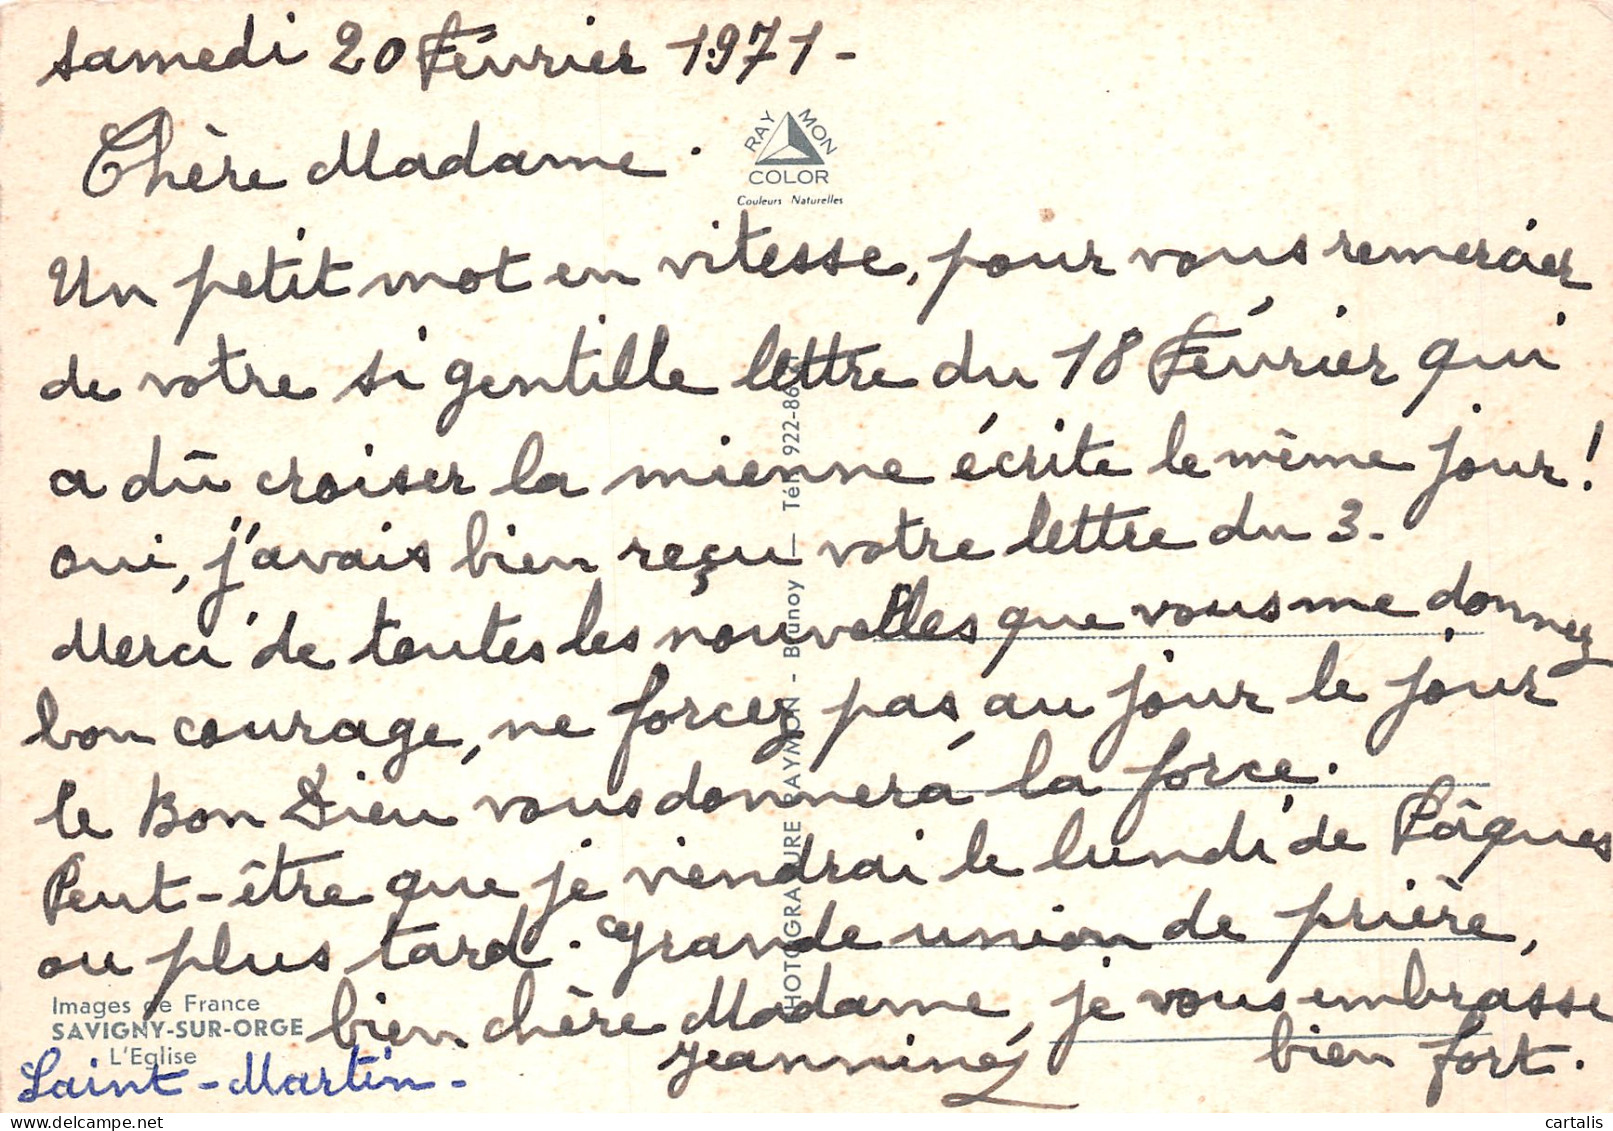 samedi 20 Février 1971-
RAYMON
COLOR
Couleurs Naturelles
Chère Madame.
Un petit mot en vitesse, pour vous remercier
de votre si gentille lettre du 18 Février qui
a dû croiser la mienne écrite le même jour!
oui, j'avais bien reçu votre lettre du 3.
Merci de toutes les nouvelles que vous me donnez
bon courage, ne forcez pas, au jour le jour
le Bon Dieu vous donnera la force.
Peut-être que je viendrai le lundi de Pâques
ou plus tard. Grande union de prière,
bien chère Madame, je vous embrasse
bien fort.
Jeannine
PHOTOGRAVURE RAYMON - Brunoy — Tél. 922-86
Images de France
SAVIGNY-SUR-ORGE
L'Eglise
Saint-Martin-
cartalis